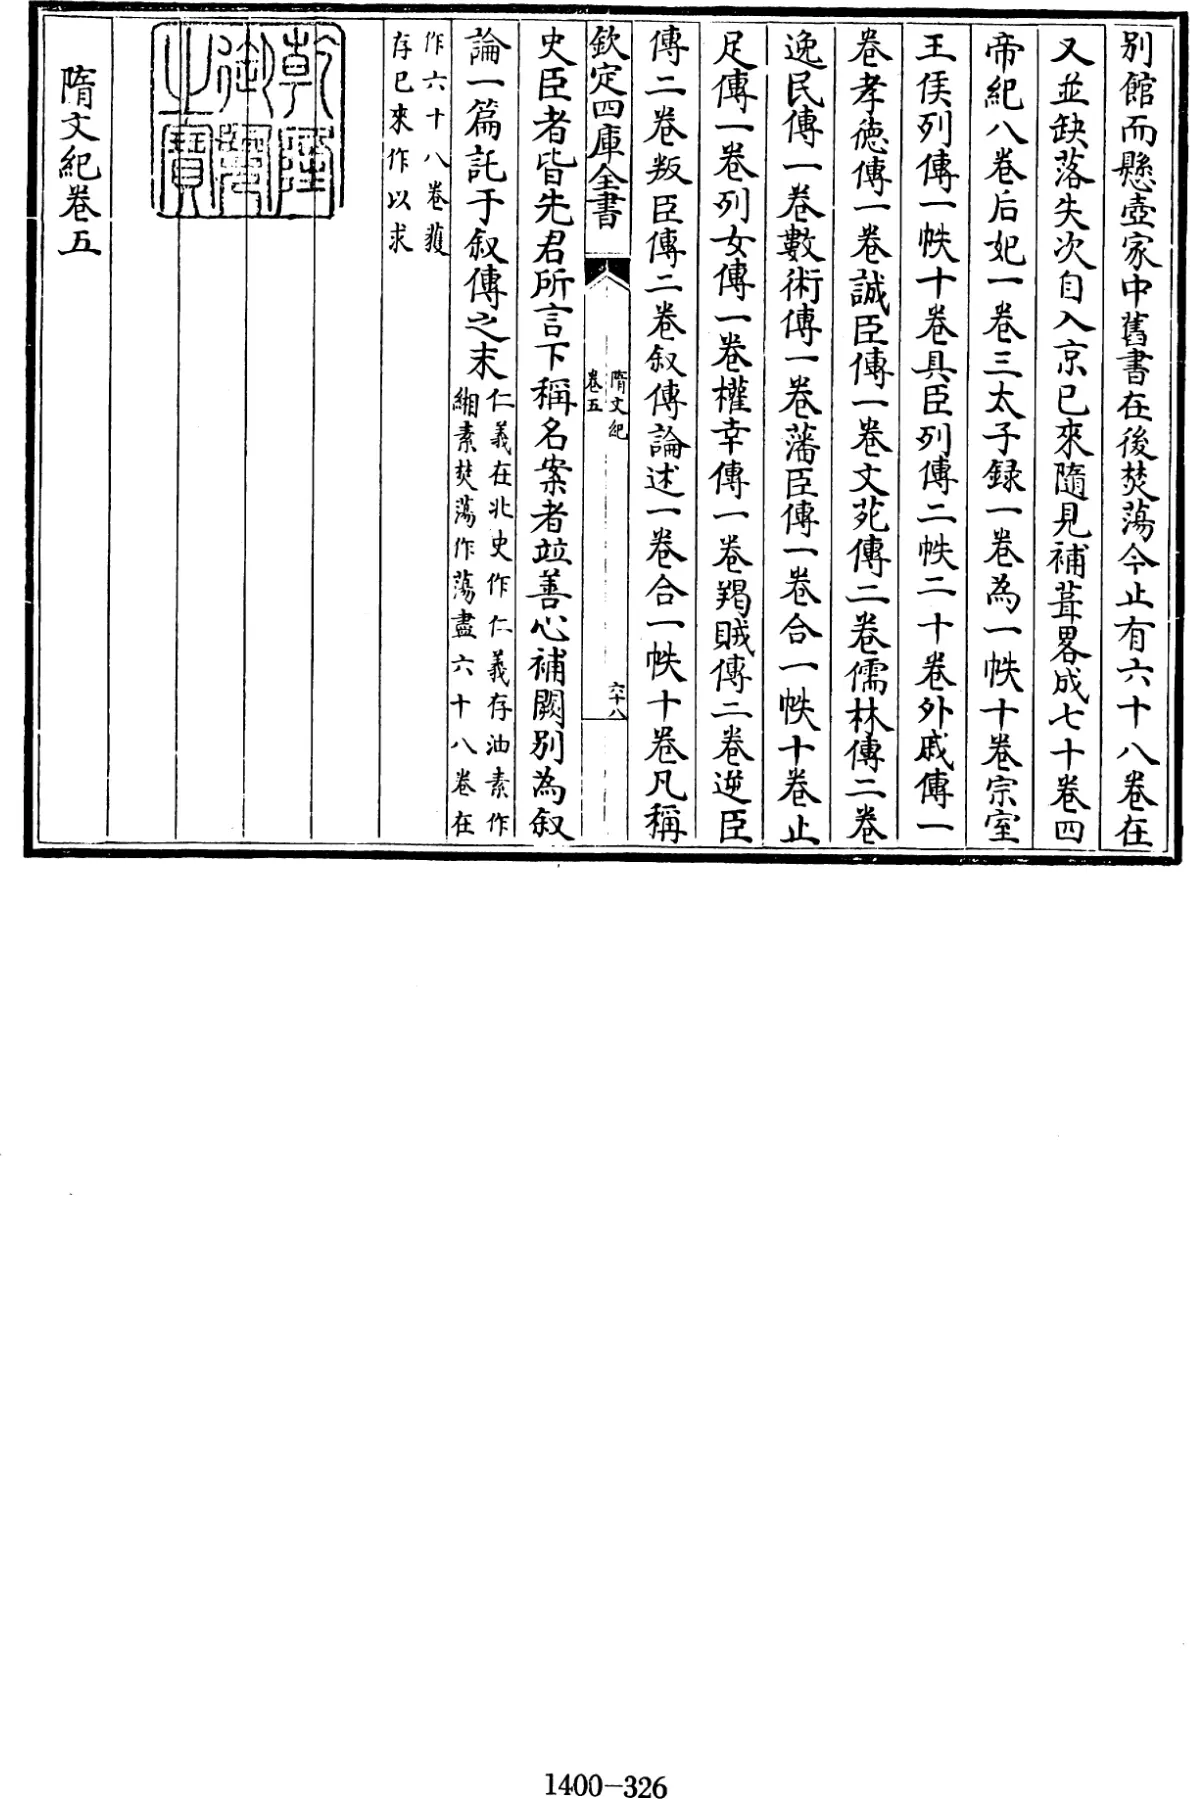 別館而懸壺家中舊書在後焚蕩今止有六十八卷在
又並缺落失次自入京已來隨見補葺畧成七十卷四
帝紀八卷后妃一卷三太子録一卷為一帙十卷宗室
王侯列傳一帙十卷具臣列傳二帙二十卷外戚傳一
卷孝德傳一卷誠臣傳一卷文苑傳二卷儒林傳二卷
逸民傳一卷數術傳一卷藩臣傳一卷合一帙十卷止
足傳一卷列女傳一卷權幸傳一卷羯賊傳二卷逆臣
傳二卷叛臣傳二卷叙傳論述一卷合一帙十卷凡稱
欽定四庫全書
隋文紀
卷五
六十八
史臣者皆先君所言下稱名案者竝善心補闕別為叙
論一篇託于叙傳之末
仁義在北史作仁義存油素作
緗素焚蕩作蕩盡六十八卷在
作六十八卷獲
存已來作以求
乾隆
御覽
之寶
隋文紀卷五
1400-326